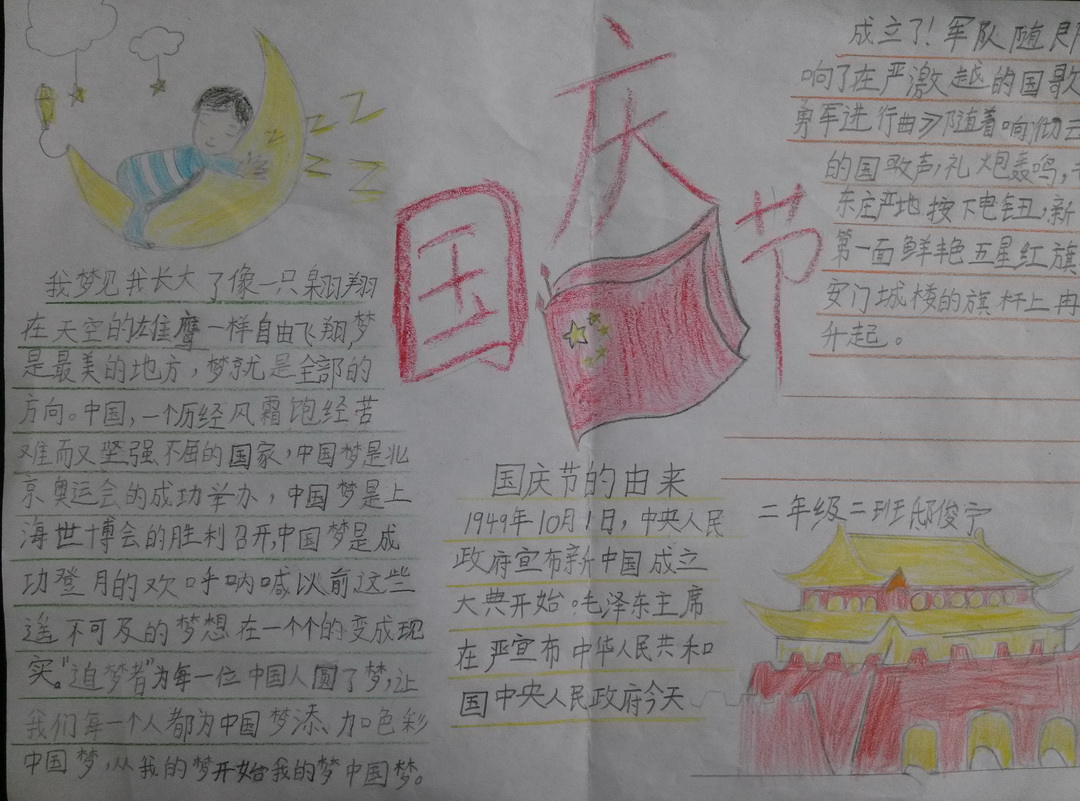 国庆节
我梦见我长大了像一只翱翔
在天空的雄鹰一样自由飞翔梦
是最美的地方，梦就是全部的
方向。中国，一个历经风霜饱经苦
难而又坚强不屈的国家，中国梦是北
京奥运会的成功举办，中国梦是上
海世博会的胜利召开，中国梦是成
功登月的欢呼呐喊以前这些
遥不可及的梦想在一个个的变成现
实。"追梦者"为每一位中国人圆了梦，让
我们每一个人都为中国梦添、加色彩
中国梦，从我的梦开始我的梦中国梦。
国庆节的由来
1949年10月1日，中央人民
政府宣布新中国成立
大典开始。毛泽东主席
在严宣布中华人民共和
国中央人民政府今天
成立了！军队随即
响了在严激越的国歌
勇军进行曲》随着响彻云
的国歌声，礼炮轰鸣，
东庄严地按下电钮，新
第一面鲜艳五星红旗
安门城楼的旗杆上冉
升起。
二年级二班邸俊宁
z z z z z z